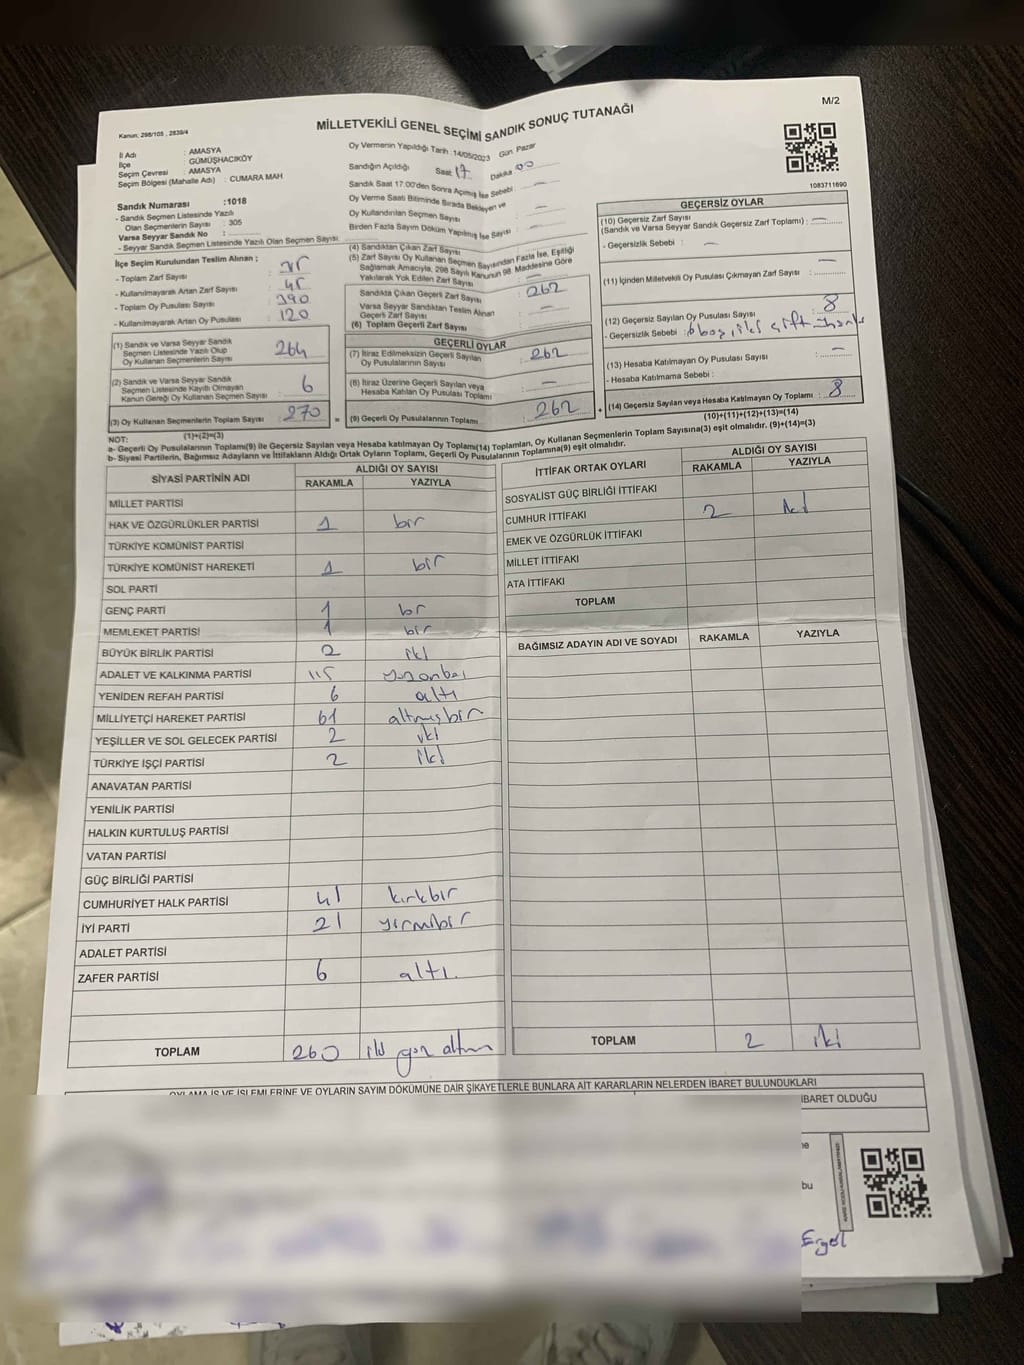 M/2
Kanun: 298/105 , 2839/4
MİLLETVEKİLİ GENEL SEÇİMİ SANDIK SONUÇ TUTANAĞI
İl Adı : AMASYA
İlçe : GÜMÜŞHACIKÖY
Seçim Çevresi : AMASYA
Seçim Bölgesi (Mahalle Adı) : CUMARA MAH
Oy Vermenin Yapıldığı Tarih : 14/05/2023 Gün Pazar
Sandığın Açıldığı Saat 17 Dakika : 00
Sandık Saat 17:00'den Sonra Açılmış İse Sebebi : —
Oy Verme Saati Bitiminde Sırada Bekleyen ve
Oy Kullandırılan Seçmen Sayısı : —
Birden Fazla Sayım Döküm Yapılmış İse Sayısı : —
1083711690
Sandık Numarası :1018
- Sandık Seçmen Listesinde Yazılı
Olan Seçmenlerin Sayısı : 305
Varsa Seyyar Sandık No :
- Seyyar Sandık Seçmen Listesinde Yazılı Olan Seçmen Sayısı:
İlçe Seçim Kurulundan Teslim Alınan ;
- Toplam Zarf Sayısı :
- Kullanılmayarak Artan Zarf Sayısı : 45
- Toplam Oy Pusulası Sayısı : 390
- Kullanılmayarak Artan Oy Pusulası : 120
(1) Sandık ve Varsa Seyyar Sandık
Seçmen Listesinde Yazılı Olup
Oy Kullanan Seçmenlerin Sayısı : 264
(2) Sandık ve Varsa Seyyar Sandık
Seçmen Listesinde Kayıtlı Olmayan
Kanun Gereği Oy Kullanan Seçmen Sayısı : 6
(3) Oy Kullanan Seçmenlerin Toplam Sayısı : 270
(1)+(2)=(3)
(4) Sandıktan Çıkan Zarf Sayısı
(5) Zarf Sayısı Oy Kullanan Seçmen Sayısından Fazla İse, Eşitliği
Sağlamak Amacıyla, 298 Sayılı Kanunun 98. Maddesine Göre
Yakılarak Yok Edilen Zarf Sayısı : —
Sandıkta Çıkan Geçerli Zarf Sayısı : 262
Varsa Seyyar Sandıktan Teslim Alınan
Geçerli Zarf Sayısı
(6) Toplam Geçerli Zarf Sayısı :
GEÇERLİ OYLAR
(7) İtiraz Edilmeksizin Geçerli Sayılan
Oy Pusulalarının Sayısı : 262
(8) İtiraz Üzerine Geçerli Sayılan veya
Hesaba Katılan Oy Pusulası Toplamı : —
= (9) Geçerli Oy Pusulalarının Toplamı : 262
GEÇERSİZ OYLAR
(10) Geçersiz Zarf Sayısı
(Sandık ve Varsa Seyyar Sandık Geçersiz Zarf Toplamı) : —
- Geçersizlik Sebebi : —
(11) İçinden Milletvekili Oy Pusulası Çıkmayan Zarf Sayısı : —
(12) Geçersiz Sayılan Oy Pusulası Sayısı : 8
- Geçersizlik Sebebi : 6 boş, iki çift
(13) Hesaba Katılmayan Oy Pusulası Sayısı : —
- Hesaba Katılmama Sebebi :
+ (14) Geçersiz Sayılan veya Hesaba Katılmayan Oy Toplamı : 8
(10)+(11)+(12)+(13)=(14)
NOT:
a- Geçerli Oy Pusulasının Toplamı(9) ile Geçersiz Sayılan veya Hesaba katılmayan Oy Toplamı(14) Toplamları, Oy Kullanan Seçmenlerin Toplam Sayısına(3) eşit olmalıdır. (9)+(14)=(3)
b- Siyasi Partilerin, Bağımsız Adayların ve İttifakların Aldığı Ortak Oyların Toplamı, Geçerli Oy Pusulalarının Toplamına(9) eşit olmalıdır.
SİYASİ PARTİNİN ADI ALDIĞI OY SAYISI
RAKAMLA YAZIYLA
MİLLET PARTİSİ
HAK VE ÖZGÜRLÜKLER PARTİSİ 1 bir
TÜRKİYE KOMÜNİST PARTİSİ
TÜRKİYE KOMÜNİST HAREKETİ 1 bir
SOL PARTİ
GENÇ PARTİ 1 bir
MEMLEKET PARTİSİ 1 bir
BÜYÜK BİRLİK PARTİSİ 2 iki
ADALET VE KALKINMA PARTİSİ 115 yüzonbeş
YENİDEN REFAH PARTİSİ 6 altı
MİLLİYETÇİ HAREKET PARTİSİ 61 altmışbir
YEŞİLLER VE SOL GELECEK PARTİSİ 2 iki
TÜRKİYE İŞÇİ PARTİSİ 2 iki
ANAVATAN PARTİSİ
YENİLİK PARTİSİ
HALKIN KURTULUŞ PARTİSİ
VATAN PARTİSİ
GÜÇ BİRLİĞİ PARTİSİ
CUMHURİYET HALK PARTİSİ 41 kırkbir
İYİ PARTİ 21 yirmibir
ADALET PARTİSİ
ZAFER PARTİSİ 6 altı
TOPLAM 260 iki yüz altmış
İTTİFAK ORTAK OYLARI ALDIĞI OY SAYISI
RAKAMLA YAZIYLA
SOSYALİST GÜÇ BİRLİĞİ İTTİFAKI
CUMHUR İTTİFAKI 2 iki
EMEK VE ÖZGÜRLÜK İTTİFAKI
MİLLET İTTİFAKI
ATA İTTİFAKI
TOPLAM
BAĞIMSIZ ADAYIN ADI VE SOYADI RAKAMLA YAZIYLA
TOPLAM 2 iki
OYLAMA İŞ VE İŞLEMLERİNE VE OYLARIN SAYIM DÖKÜMÜNE DAİR ŞİKAYETLERLE BUNLARA AİT KARARLARIN NELERDEN İBARET BULUNDUKLARI
İBARET OLDUĞU
bu